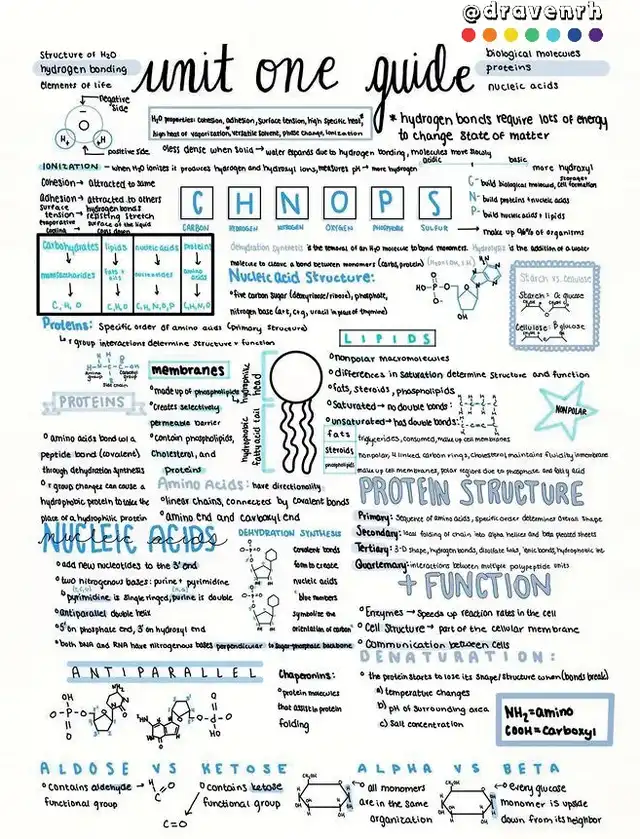 @dravenrh
unit one guide
Structure of H2O
hydrogen bonding
elements of life
biological molecules
proteins
nucleic acids
negative side
H+
H+
positive side
H2O properties: cohesion, adhesion, surface tension, high specific heat,
high heat of vaporization, versatile solvent, phase change, ionization
* hydrogen bonds require lots of energy
to change state of matter
less dense when solid → water expands due to hydrogen bonding, molecules more slowly
acidic
basic
IONIZATION - when H2O ionizes it produces hydrogen and hydroxyl ions, measures pH → more hydrogen
more hydroxyl
Cohesion → attracted to same
Adhesion → attracted to others
surface tension → hydrogen bonds resisting stretch
evaporative cooling → surface of the liquid cools down
C H N O P S
CARBON HYDROGEN NITROGEN OXYGEN PHOSPHORUS SULFUR
C - build biological molecules, storage + cell formation
N - build proteins + nucleic acids
P - build nucleic acids + lipids
→ make up 96% of organisms
Carbohydrates lipids nucleic acids proteins
monosaccharides fats + oils nucleotides amino acids
C, H, O C, H, O C, H, N, O, P C, H, N, O
Dehydration synthesis is the removal of an H2O molecule to bond monomers. Hydrolysis is the addition of a water
molecule to cleave a bond between monomers (carbs, protein)
Nucleic Acid Structure:
five carbon sugar (deoxyribose/ribose), phosphate,
nitrogen base (a+t, c+g, uracil in place of thymine)
Starch vs. cellulose
Starch: α glucose
Cellulose: β glucose
Proteins: Specific order of amino acids (primary structure)
↳ r group interactions determine structure + function
Amino group
Carboxyl group
Side chain
PROTEINS
amino acids bond via a
peptide bond (covalent)
through dehydration synthesis
r group changes can cause a
hydrophobic protein to take the
place of a hydrophilic protein
membranes
made up of phospholipids
creates selectively
permeable barrier
contain phospholipids,
cholesterol, and
proteins
hydrophilic head
hydrophobic fatty acid tail
LIPIDS
nonpolar macromolecules
differences in saturation determine structure and function
fats, steroids, phospholipids
saturated → no double bonds:
unsaturated → has double bonds:
NONPOLAR
fats triglycerides, consumed, make up cell membranes
steroids nonpolar, 4 linked carbon rings, cholesterol maintains fluidity in membrane
phospholipids make up cell membranes, polar regions due to phosphate and fatty acid
Amino Acids: have directionality
linear chains, connected by covalent bonds
amino end and carboxyl end
PROTEIN STRUCTURE
Primary: Sequence of amino acids, specific order determines overall shape
Secondary: local folding of chain into alpha helices and beta pleated sheets
Tertiary: 3-D shape, hydrogen bonds, disulfide links, ionic bonds, hydrophobic int.
Quarternary: interactions between multiple polypeptide units
+ FUNCTION
Enzymes → speeds up reaction rates in the cell
Cell Structure → part of the cellular membrane
Communication between cells
NUCLEIC ACIDS
nucleic acids
add new nucleotides to the 3' end
two nitrogenous bases: purine + pyrimidine
pyrimidine is single ringed, purine is double
antiparallel double helix
5' on phosphate end, 3' on hydroxyl end
both DNA and RNA have nitrogenous bases perpendicular to sugar-phosphate backbone
DEHYDRATION SYNTHESIS
covalent bonds
form to create
nucleic acids
blue numbers
symbolize the
orientation of carbon
DENATURATION:
the protein starts to lose its shape/structure when (bonds break)
a) temperature changes
b) pH of surrounding area
c) Salt concentration
NH2 = amino
COOH = carboxyl
ANTIPARALLEL
Chaperonins:
protein molecules
that assist in protein
folding
ALDOSE VS KETOSE
contains aldehyde →
functional group
contains ketose
functional group
C=O
ALPHA VS BETA
all monomers
are in the same
organization
every glucose
monomer is upside
down from its neighbor